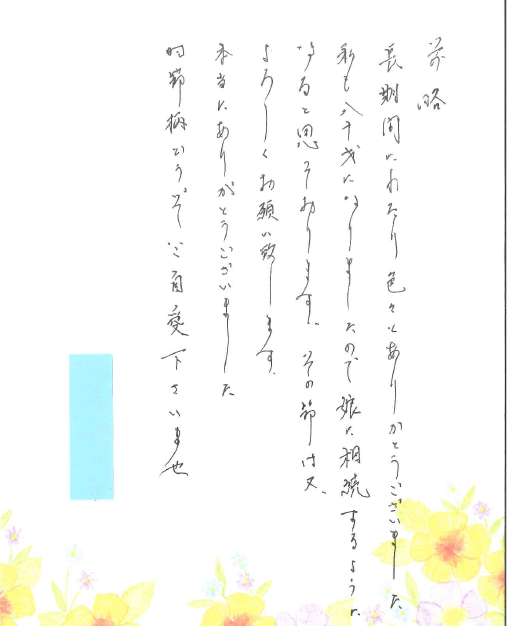 前略
長期間にわたり色々とありがとうございました
私も八十才になりましたので娘に相続するように
なると思っております、その節は又、
よろしくお願い致します。
本当にありがとうございました
時節柄どうぞご自愛下さいませ